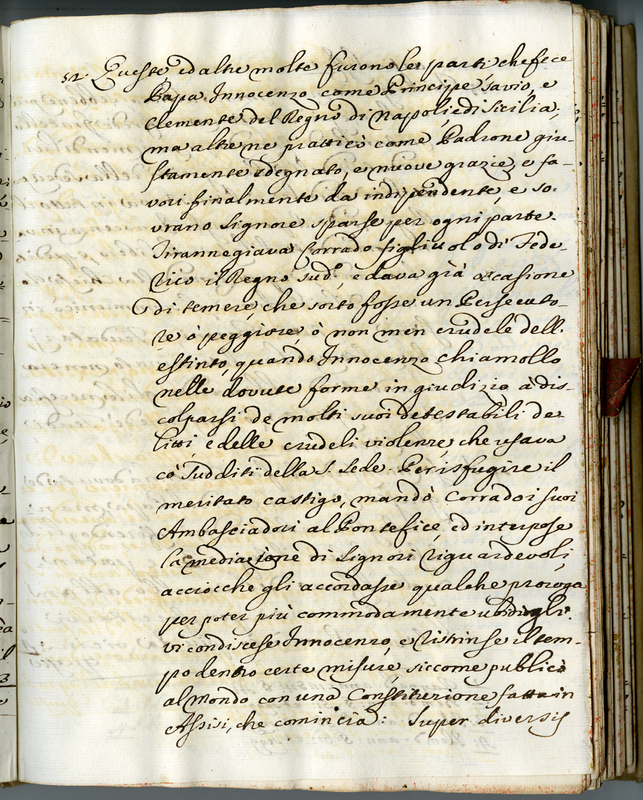 52 Queste ed altre molte furono le parti che fece
Papa Innocenzo come Principe savio, e
clemente del Regno di Napoli e di Sicilia;
ma altre ne pratticò come Padrone giu-
stamente sdegnato, e nuove grazie, e fa-
vori finalmente da indipendente, e so-
vrano Signore sparse per ogni parte.
Tirannegiava Corrado figliuolo di Fede-
rico il Regno sud.o, e dava già occasione
di temere che sorto fosse un Persecuto-
re ò peggiore, ò non men crudele dell'
estinto, quando Innocenzo chiamollo
nelle dovute forme in giudizio à dis-
colparsi de molti suoi detestabili de-
litti, e delle crudeli violenze, che usava
cò sudditi della S. Sede. Per isfugire il
meritato castigo, mandò Corrado i suoi
Ambasciadori al Pontefice, ed interpose
la mediazione di Signori riguardevoli,
acciocche gli accordasse qualche proroga
per poter più commodamente ubidirgli.
vi condiscese Innocenzo, e ristrinse il tem-
po dentro certe misure, siccome publicò
al Mondo con una Constituzione fatta in
Assisi, che comincia: Super diversis